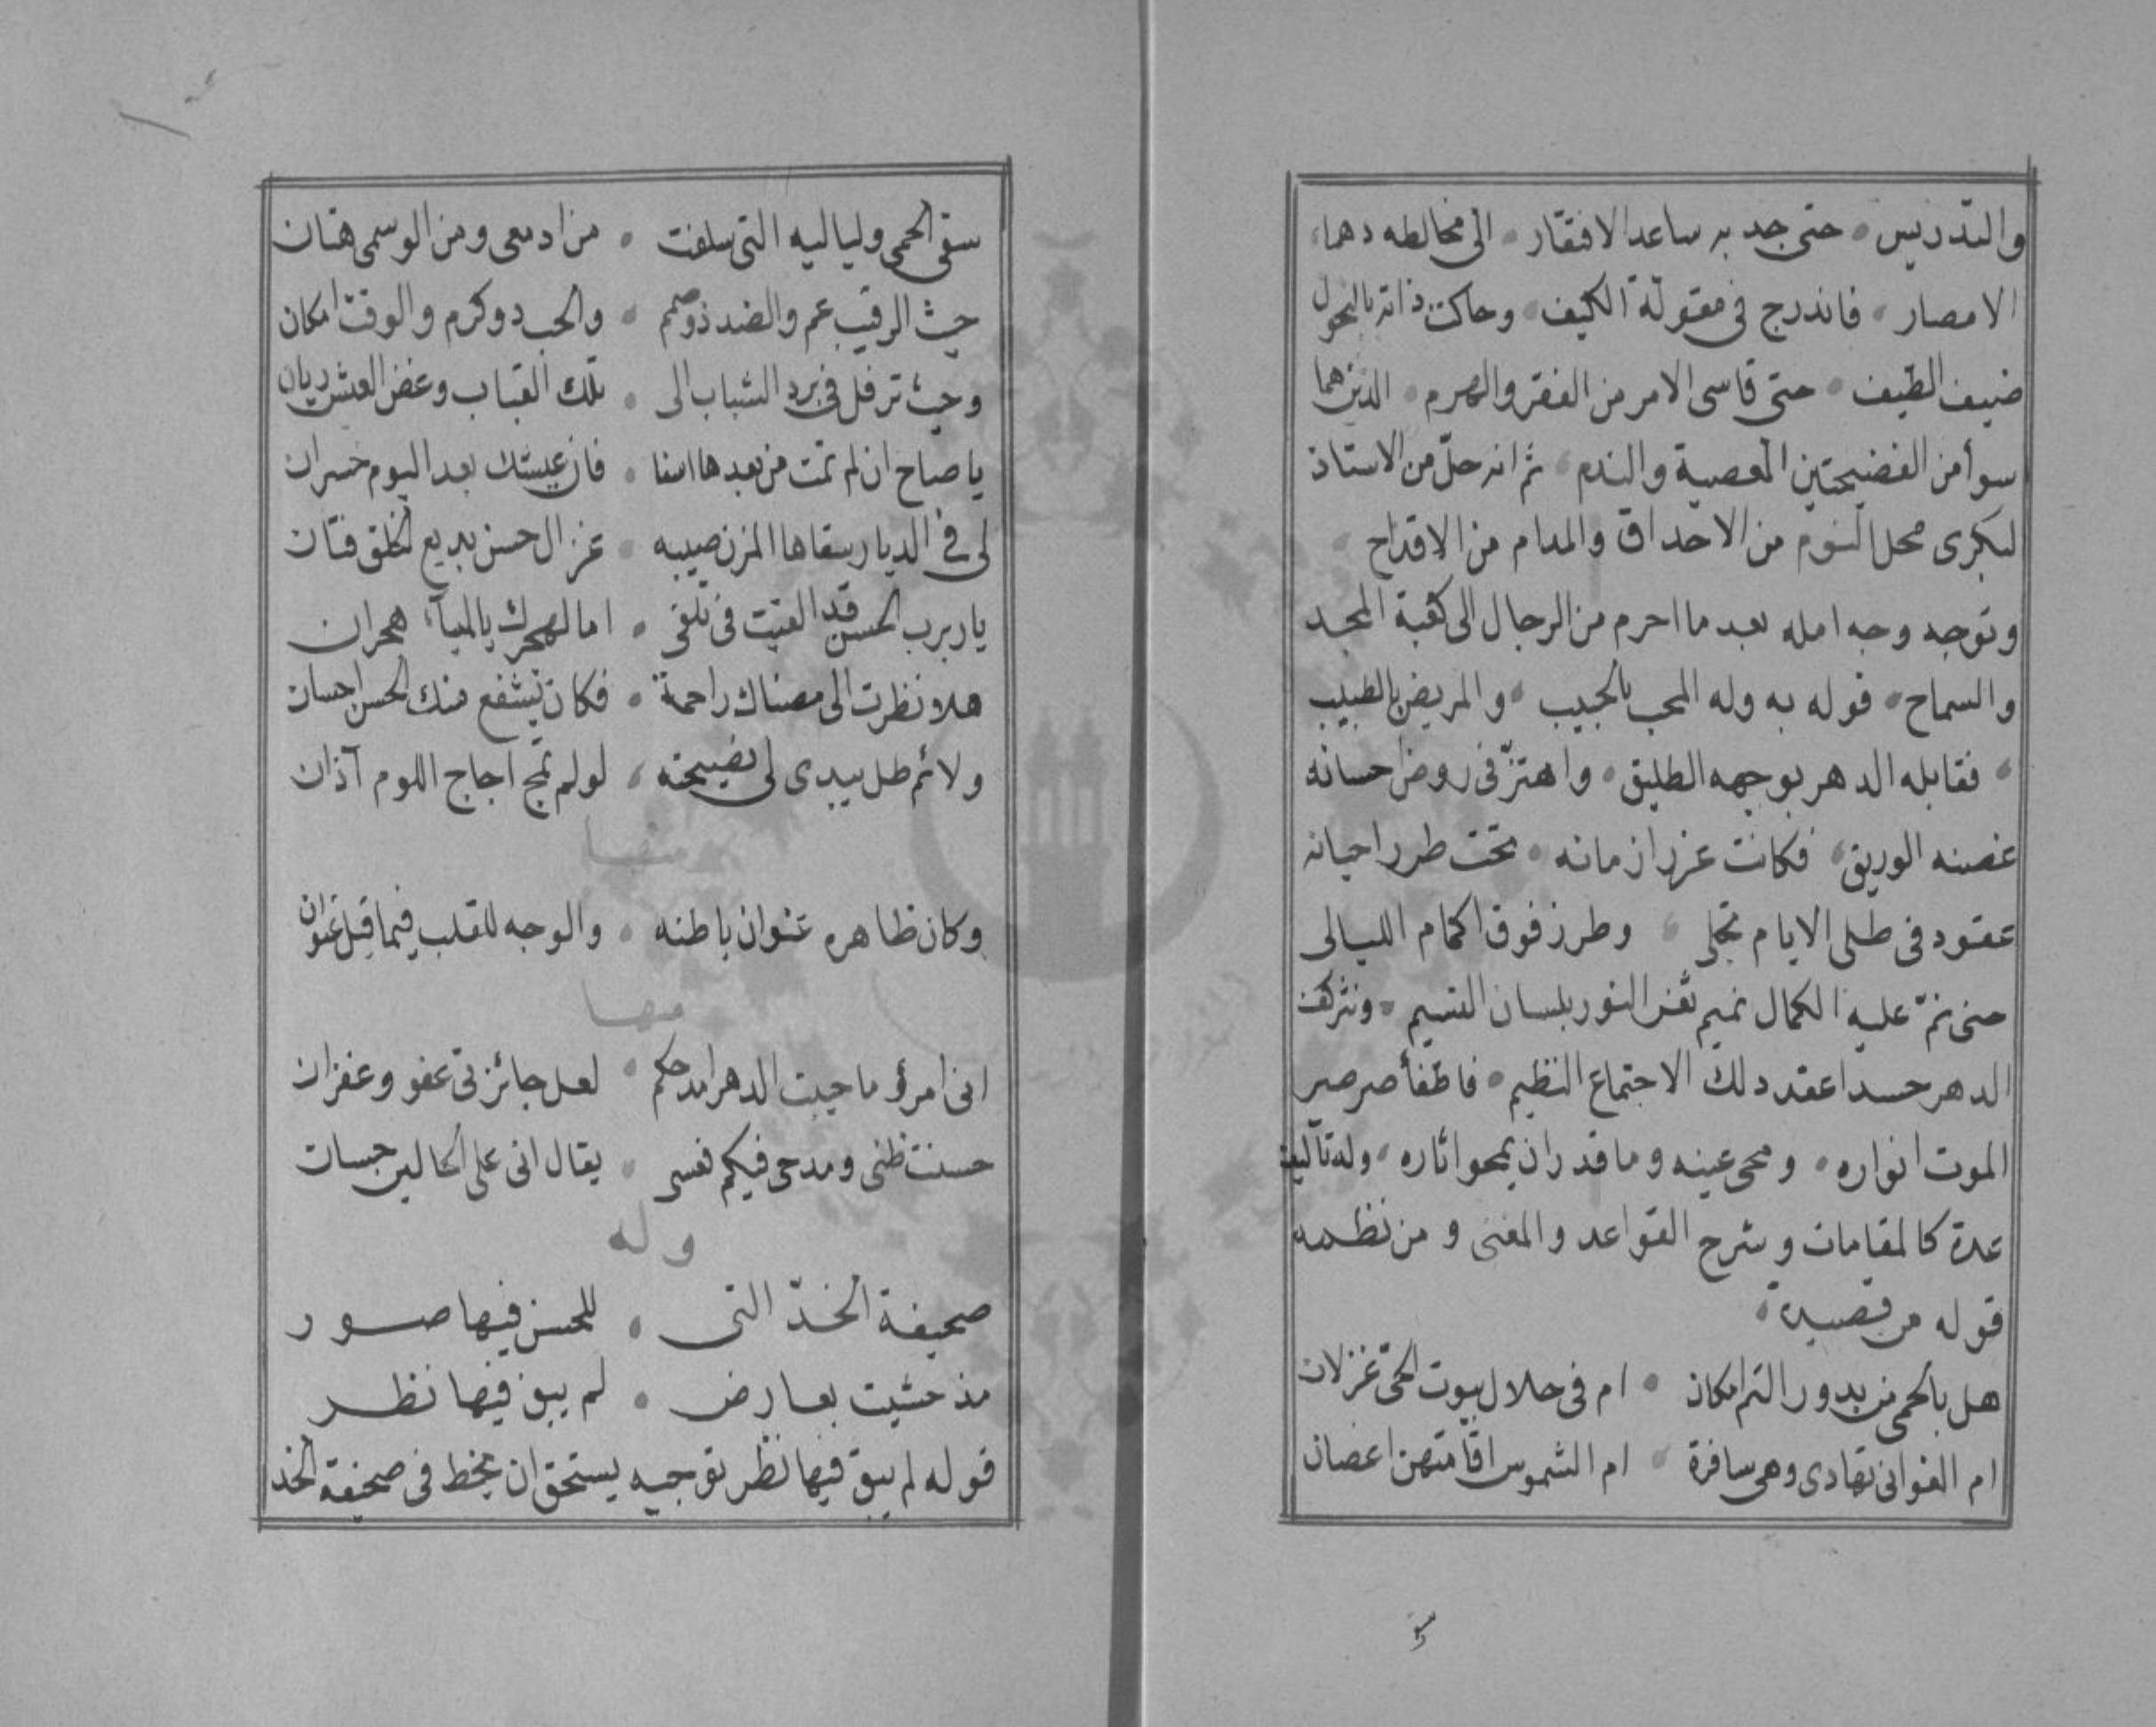 والتدريس • حتى جد به ساعد الافتقار • الى مخالطه دهماء
الامصار • فاندرج فى مقولة الكيف • وحاكت ذاته بالنحول
ضيف الطيف • حتى قاسى الامر من الفقر والهرم • الذين هما
سوأ من الفضيحتين المعصية والندم • ثم انه حلّ من الاستاذ
لبكرى محل النوم من الاحداق والمدام من الاقداح •
وتوجه وجه امله بعد ما احرم من الرجال الى كعبة المجد
والسماح • فوله به وله المحب بالحبيب • والمريض بالطبيب
• فقابله الدهر بوجهه الطليق • واهتزّ فى روض احسانه
غصنه الوريق • فكانت غرر ازمانه • تحت طرر احيانه
عقود فى طلى الايام تجلى • وطرز فوق اكمام الليالى
حتى نمّ عليه الكمال نميم ثغر النور بلسان النسيم • ونثر كف
الدهر حسدا عقد دلك الاجتماع النظيم • فاطفأ صرصر
الموت انواره • ومحى عينه وما قدر ان يمحو اثاره • وله تآليف
عدة كالمقامات وشرح القواعد والمغنى و من نظمه
قوله من قصيدة •
هل بالحمى من بدور التم امكان • ام فى حلال بيوت الحىّ غزلان
ام الغوانى تهادى وهى سافرة • ام الشموس اقامتهن اغصان
سقى الحمى ولياليه التى سلفت • من ادمعى ومن الوسمى هتان
حيث الرقيب عم والضد ذو صمم • والحب ذو كرم والوقت امكان
وحيث ترفل فى برد الشباب الى • تلك القباب وغض العيش ريان
يا صاح ان لم تمت من بعدها اسفا • فان عيشك بعد اليوم خسران
لى فى الديار سقاها المزن صيبه • غزال حسن بديع الخلق فتان
يا ربرب الحسن قد الفيت فى تلفى • اما لهجرك يا لمياء هجران
هلا نظرت الى مضناك راحمة • فكان يشفع منك الحسن احسان
ولائم ظل يبدى لى نصيحته • لو لم تمج اجاج اللوم آذان
منها
وكان ظاهره عنوان باطنه • والوجه للقلب فيما قيل عنوان
منها
انى امرؤ ما حييت الدهر امدحكم • لعل جائزتى عفو وغفران
حسنت ظنى ومدحى فيكم نفسى • يقال انى على الحالين حسان
وله
صحيفة الخدّ التى • للحسن فيها صور
مذ حشيت بعارض • لم يبق فيها نظر
قوله لم يبق فيها نظر توجيه يستحق ان يخط فى صحيفة الخد